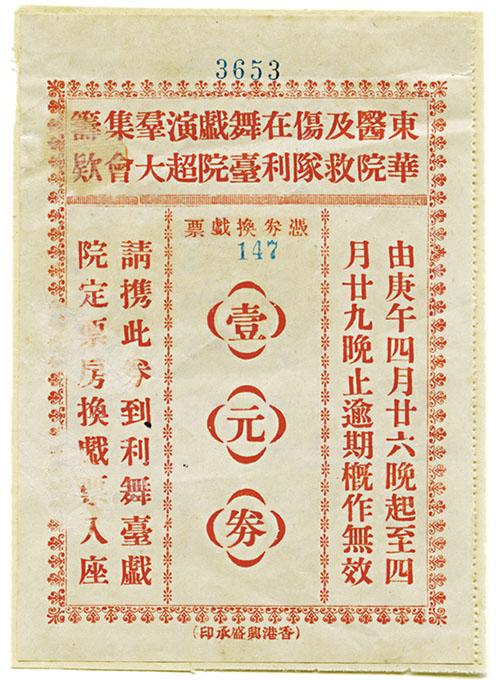 3653
東華醫院及救傷隊在利舞臺戲院演超羣大集會籌欵
由庚午四月廿六晚起至四
月廿九晚止逾期概作無效
憑券換戲票
147
壹元券
請携此券到利舞臺戲
院定票房換戲票入座
(香港興盛承印)